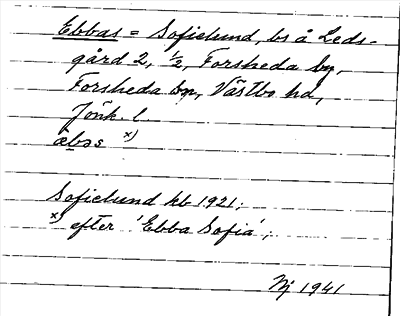 Ebbas = Sofielund, bs å Leds-
gård 2, ½, Forsheda by,
Forsheda sn, Västbo hd,
Jönk. l.
æbas x)
Sofielund kb 1921;
x) efter 'Ebba Sofia';
1941